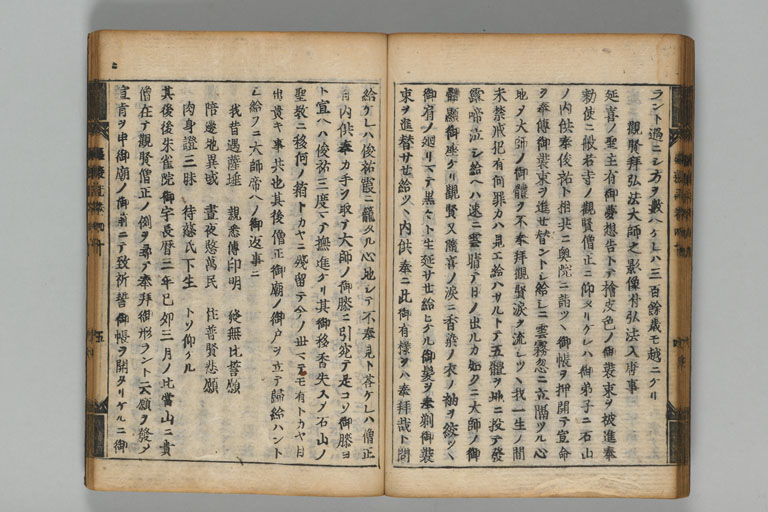 ラント過ニシ方ヲ數ヘケレハ三百餘歳モ越ニケリ
觀賢拜弘法大師之影像付弘法入唐事
延喜ノ聖主有御夢想告トテ檜皮色ノ御裝束ヲ被進奉
勅使ニ般若寺ノ觀賢僧正ニ仰タリケレハ御弟子ニ石山
ノ内供奉俊祐ト相共ニ奥院ニ詣ツヽ御帳ヲ押開テ宣命
ヲ奉傳御裝束ヲ進セ替ントシ給シニ雲霧忽ニ立隔ツル心
地ヌ大師ノ御體ヲ不奉拜觀賢涙ヲ流シツヽ我一生ノ間
未禁戒犯有何罪カハ見エ給ハサルトテ五體ヲ地ニ投テ發
露啼泣シ給ヘハ速ニ雲晴テ月ノ出ルカ如クニ大師ノ御
體顯御座ケリ觀賢又隨喜ノ涙ニ香染ノ衣ノ袖ヲ絞ツヽ
御肩ノ廻リマテ黒々ト生延サセ給ヒケル御髪ヲ奉剃御裝
束ヲ進替サセ給ツヽ内供奉ニ此御有樣ヲハ奉拜哉ト問
給ケレハ俊祐霞ニ籠タル心地シテ不奉見ト答ケレハ僧正
内供奉カ手ヲ取テ大師ノ御膝ニ引宛テ是コソ御膝ヨ
ト宣ヘハ俊祐三度マテ撫進ケリ其御移香失スシテ石山ノ
聖教ニ移何ノ箱トカヤニ殘留テ今ノ世マテモ有トカヤ目
出貴キ事共也其後僧正御廟ノ御戸ヲ立テ歸給ハント
シ給フニ大師帝ヘノ御返事ニ
我昔遇薩埵　親悉傳印明　發無比誓願
陪邊地異域　晝夜愍萬民　住普賢悲願
肉身證三昧　待慈氏下生　トソ仰ケル
其後後朱雀院御宇長暦三年己卯三月ノ比當山ニ貴
僧在テ觀賢僧正ノ例ヲ尋テ奉拜御形ラント云願ヲ發メ
宣旨ヲ申御廟ノ御前ニテ致祈誓御帳ヲ開タリケルニ御
五